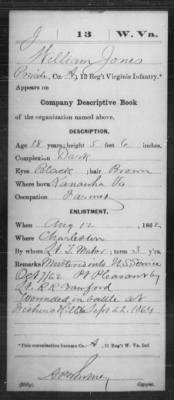 J | 13 | W. Va.
William Jones
Co. A, 13 Reg't Virginia Infantry.*
Appears on
Company Descriptive Book
of the organization named above.
DESCRIPTION.
Age 18 years; height 5 feet 6 inches.
Complexion Dark
Eyes Black; hair Brown
Where born Kanawha Va
Occupation Farmer
ENLISTMENT.
When Aug 12, 1862.
Where Charleston
By whom Lt. ; term 3 y'rs.
Remarks Mustered into U.S. Service
Oct 7/62 Pt Pleasant by
Lt. Crawford
Wounded in battle at
Fishers Hill Va Sept 22, 1864
*This organization became Co. A, 13 Reg't W. Va. Inf.
Copyist.